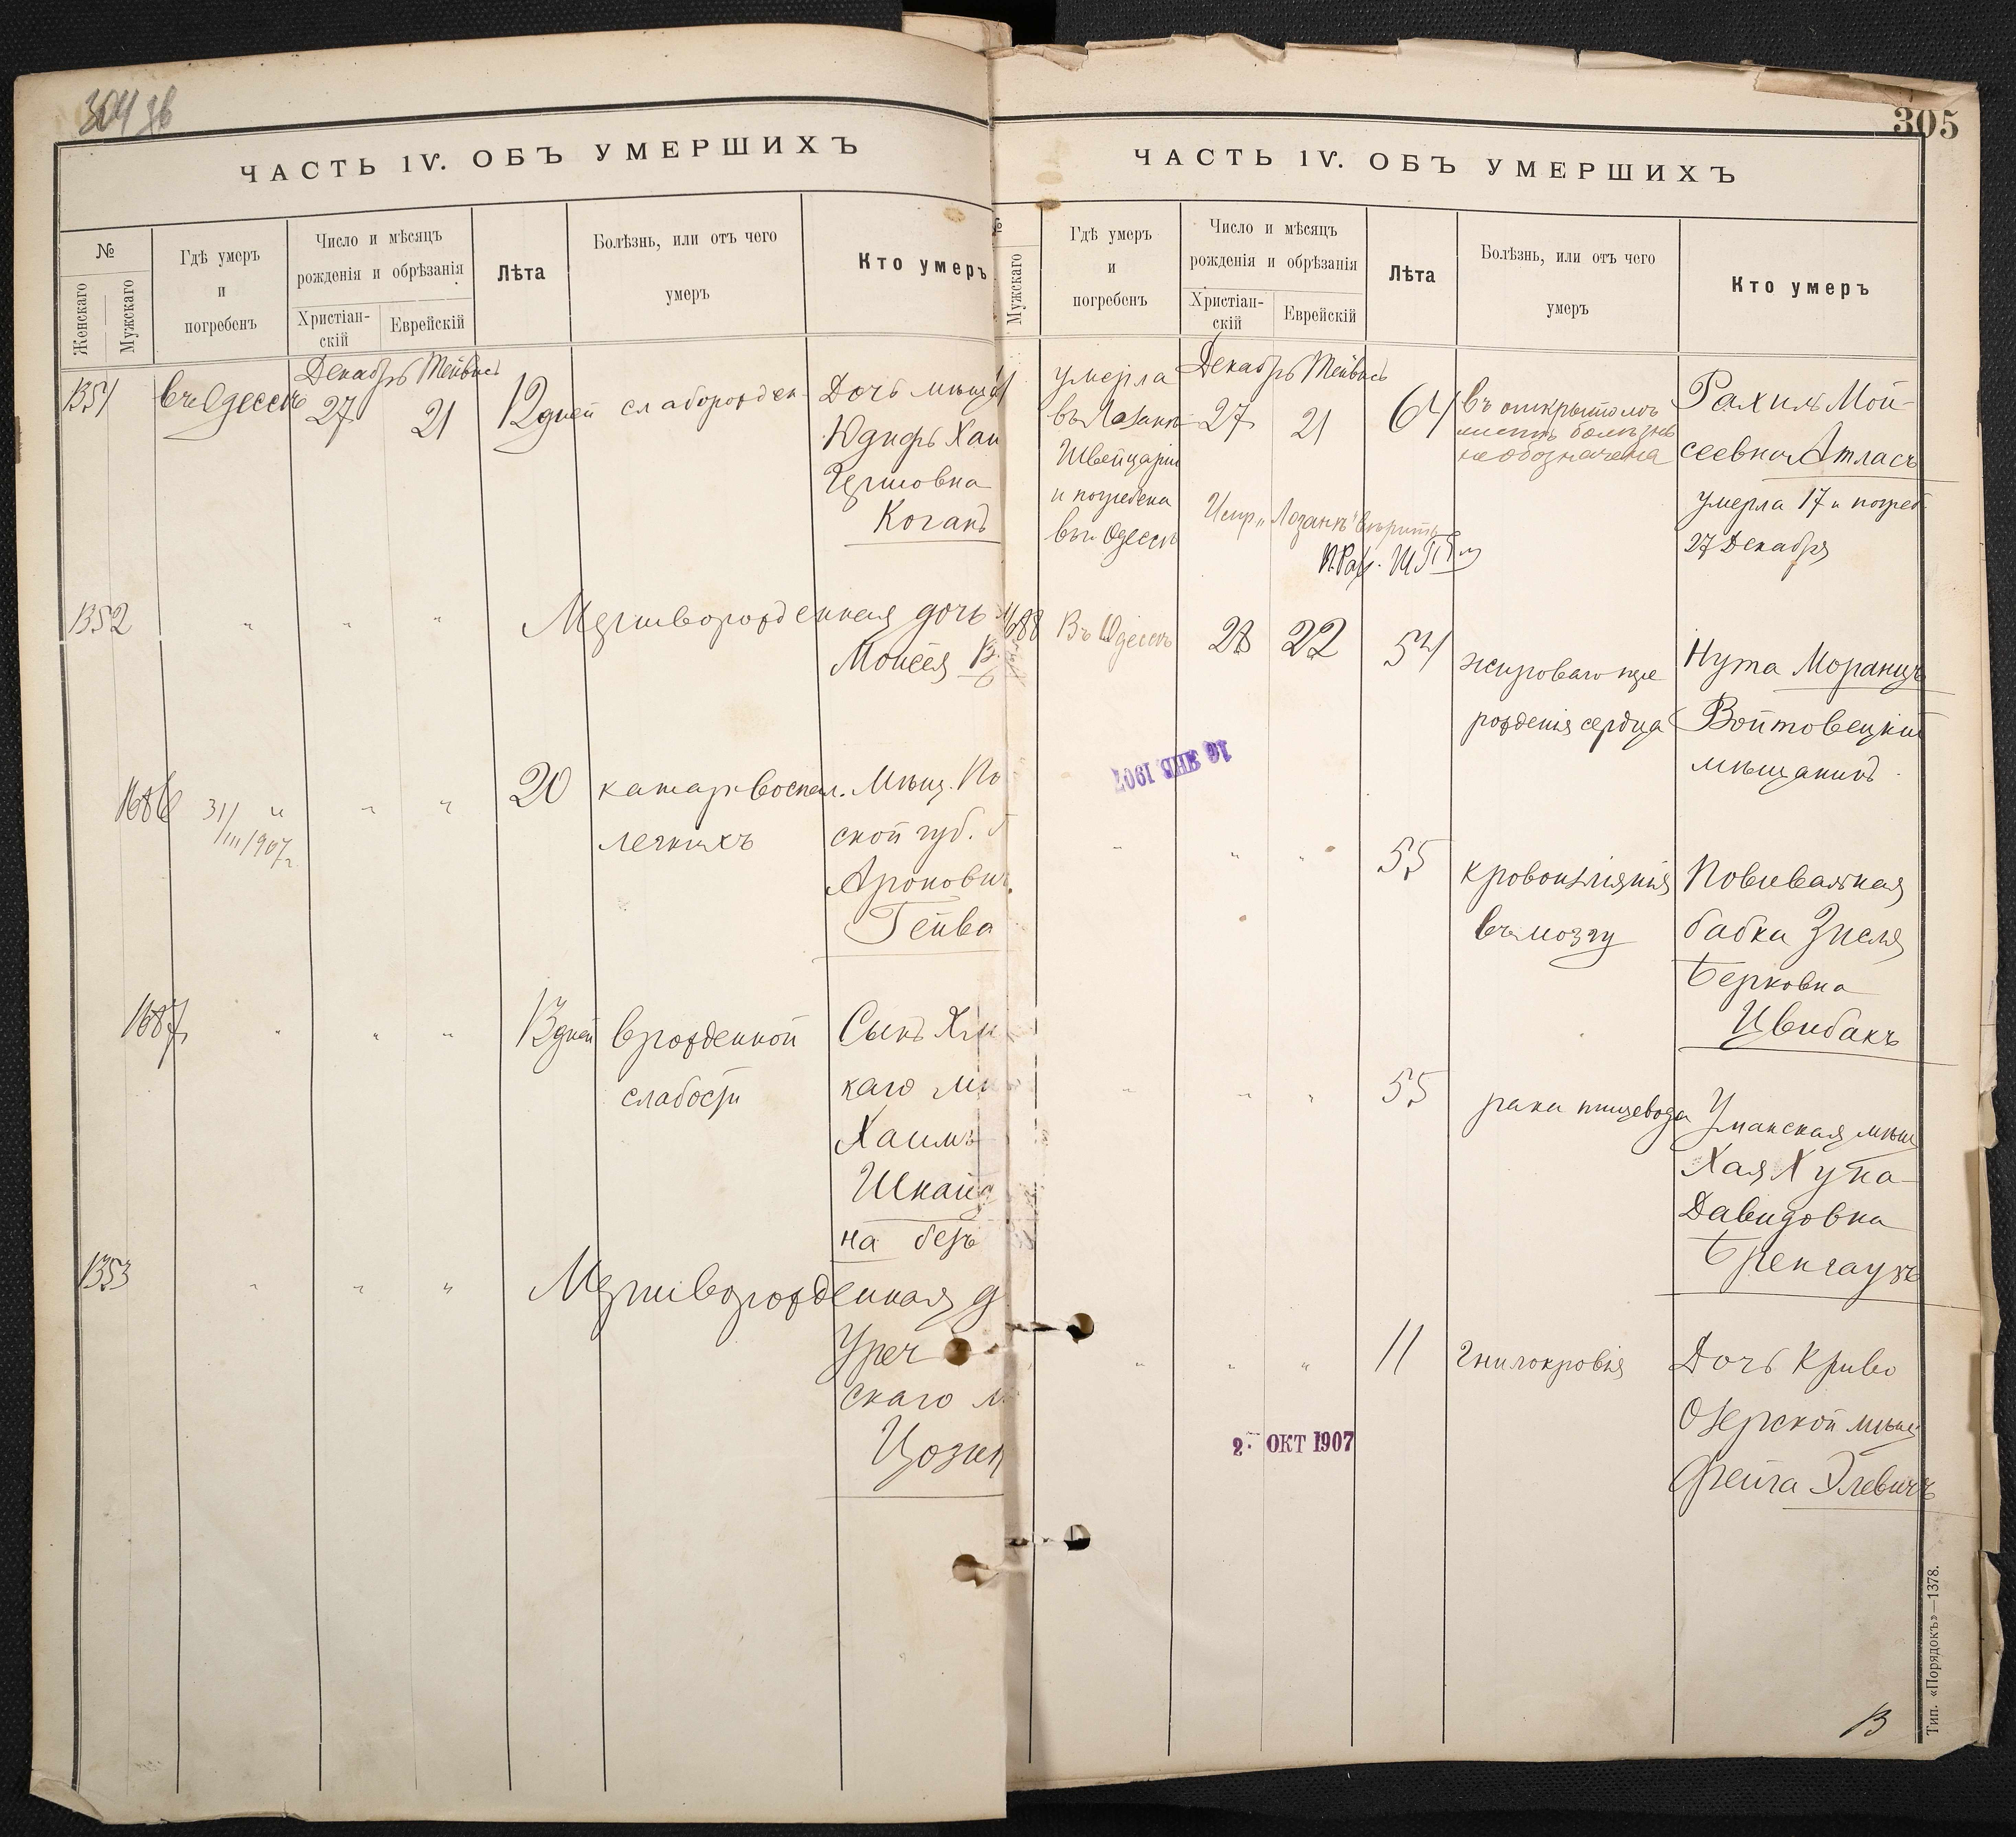 304 об
ЧАСТЬ IV. ОБЪ УМЕРШИХЪ
№
Женскаго
Мужскаго
Гдѣ умеръ
и
погребенъ
Число и мѣсяцъ
рожденія и обрѣзанія
Христіан-
скій
Еврейскій
Лѣта
Болѣзнь, или отъ чего
умеръ
Кто умеръ
1351
въ Одессѣ
Декабрь Тейвисъ
27
21
12 дней
слаборожден.
Дочь мѣщ
Юдифь Хаи
Гершовна
Коганъ
1352
"
"
"
Мертворожденная дочь
Моисея
1686
31/III 1907 г.
"
"
"
20
катар. воспал.
легкихъ
Мѣщ. По
ской губ.
Аронович
Гейва
1687
"
"
"
13 дней
врожденной
слабости
Сынъ Хм
каго мѣ
Хаимъ
Шнайд
на безъ
1353
"
"
"
Мертворожденная д
Уреч
скаго м
Цозин
305
ЧАСТЬ IV. ОБЪ УМЕРШИХЪ
№
Мужскаго
Гдѣ умеръ
и
погребенъ
Число и мѣсяцъ
рожденія и обрѣзанія
Христіан-
скій
Еврейскій
Лѣта
Болѣзнь, или отъ чего
умеръ
Кто умеръ
умерла
въ Лозаннѣ
Швейцаріи
и погребена
въ Одессѣ
Декабрь Тейвисъ
27
21
64
въ открытомъ
листѣ болѣзнь
не обозначена
Рахиль Мой-
сеевна Атласъ
умерла 17 и погреб.
27 Декабря
Испр. „Лозаннѣ" вѣрить
1688
Въ Одессѣ
28
22
54
жироваго пере
рожденія сердца
Нута Моранцъ
Войтовецкій
мѣщанинъ
16 ЯНВ. 1907
"
"
"
55
кровоизліянія
въ мозгу
Повивальная
бабка Зисля
Берковна
Цвибакъ
"
"
"
55
рака пищевода
Уманская мѣщ
Хая Хуна
Давидовна
Бренгаузъ
"
"
"
11
гнилокровія
Дочь Криво
Озерской мѣщ
Фейга Элевичъ
2. ОКТ 1907
Тип. «Порядокъ»—1378.